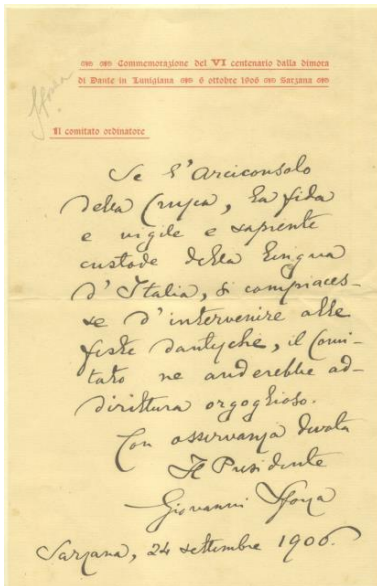 Sforza
Commemorazione del VI centenario dalla dimora
di Dante in Lunigiana 6 ottobre 1906 Sarzana
Il comitato ordinatore
Se l'Arciconsolo
della Crusca, la fida
e vigile e sapiente
custode della lingua
d'Italia, si compiaces-
se d'intervenire alle
feste dantesche, il Comi-
tato ne anderebbe ad-
dirittura orgoglioso.
Con osservanza devota
Il Presidente
Giovanni Sforza
Sarzana, 24 settembre 1906.